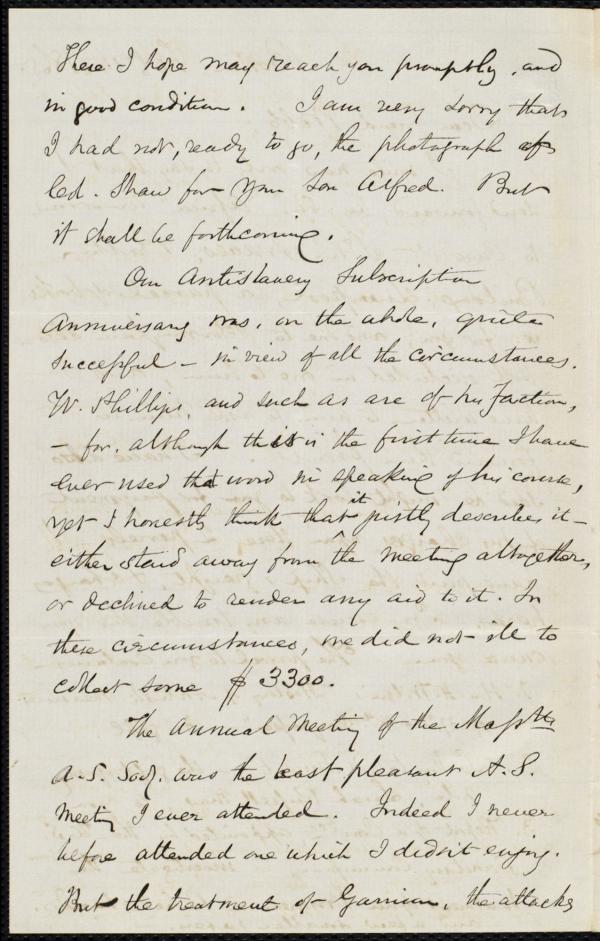 These I hope may reach you promptly, and
in good condition. I am very sorry that
I had not, ready to go, the photograph of
Col. Shaw for your son Alfred. But
it shall be forthcoming.
Our Antislavery Subscription
Anniversary was, on the whole, quite
successful – in view of all the circumstances.
W. Phillips, and such as are of his faction,
– for, although this is the first time I have
ever used that word in speaking of his course,
yet I honestly think that it justly describes it –
either staid away from the meeting altogether,
or declined to render any aid to it. In
these circumstances, we did not ill to
collect some $3300.
The Annual Meeting of the Masstts
A. S. Socy. was the least pleasant A. S.
Meeting I ever attended. Indeed I never
before attended one which I didn't enjoy.
But the treatment of Garrison, the attacks